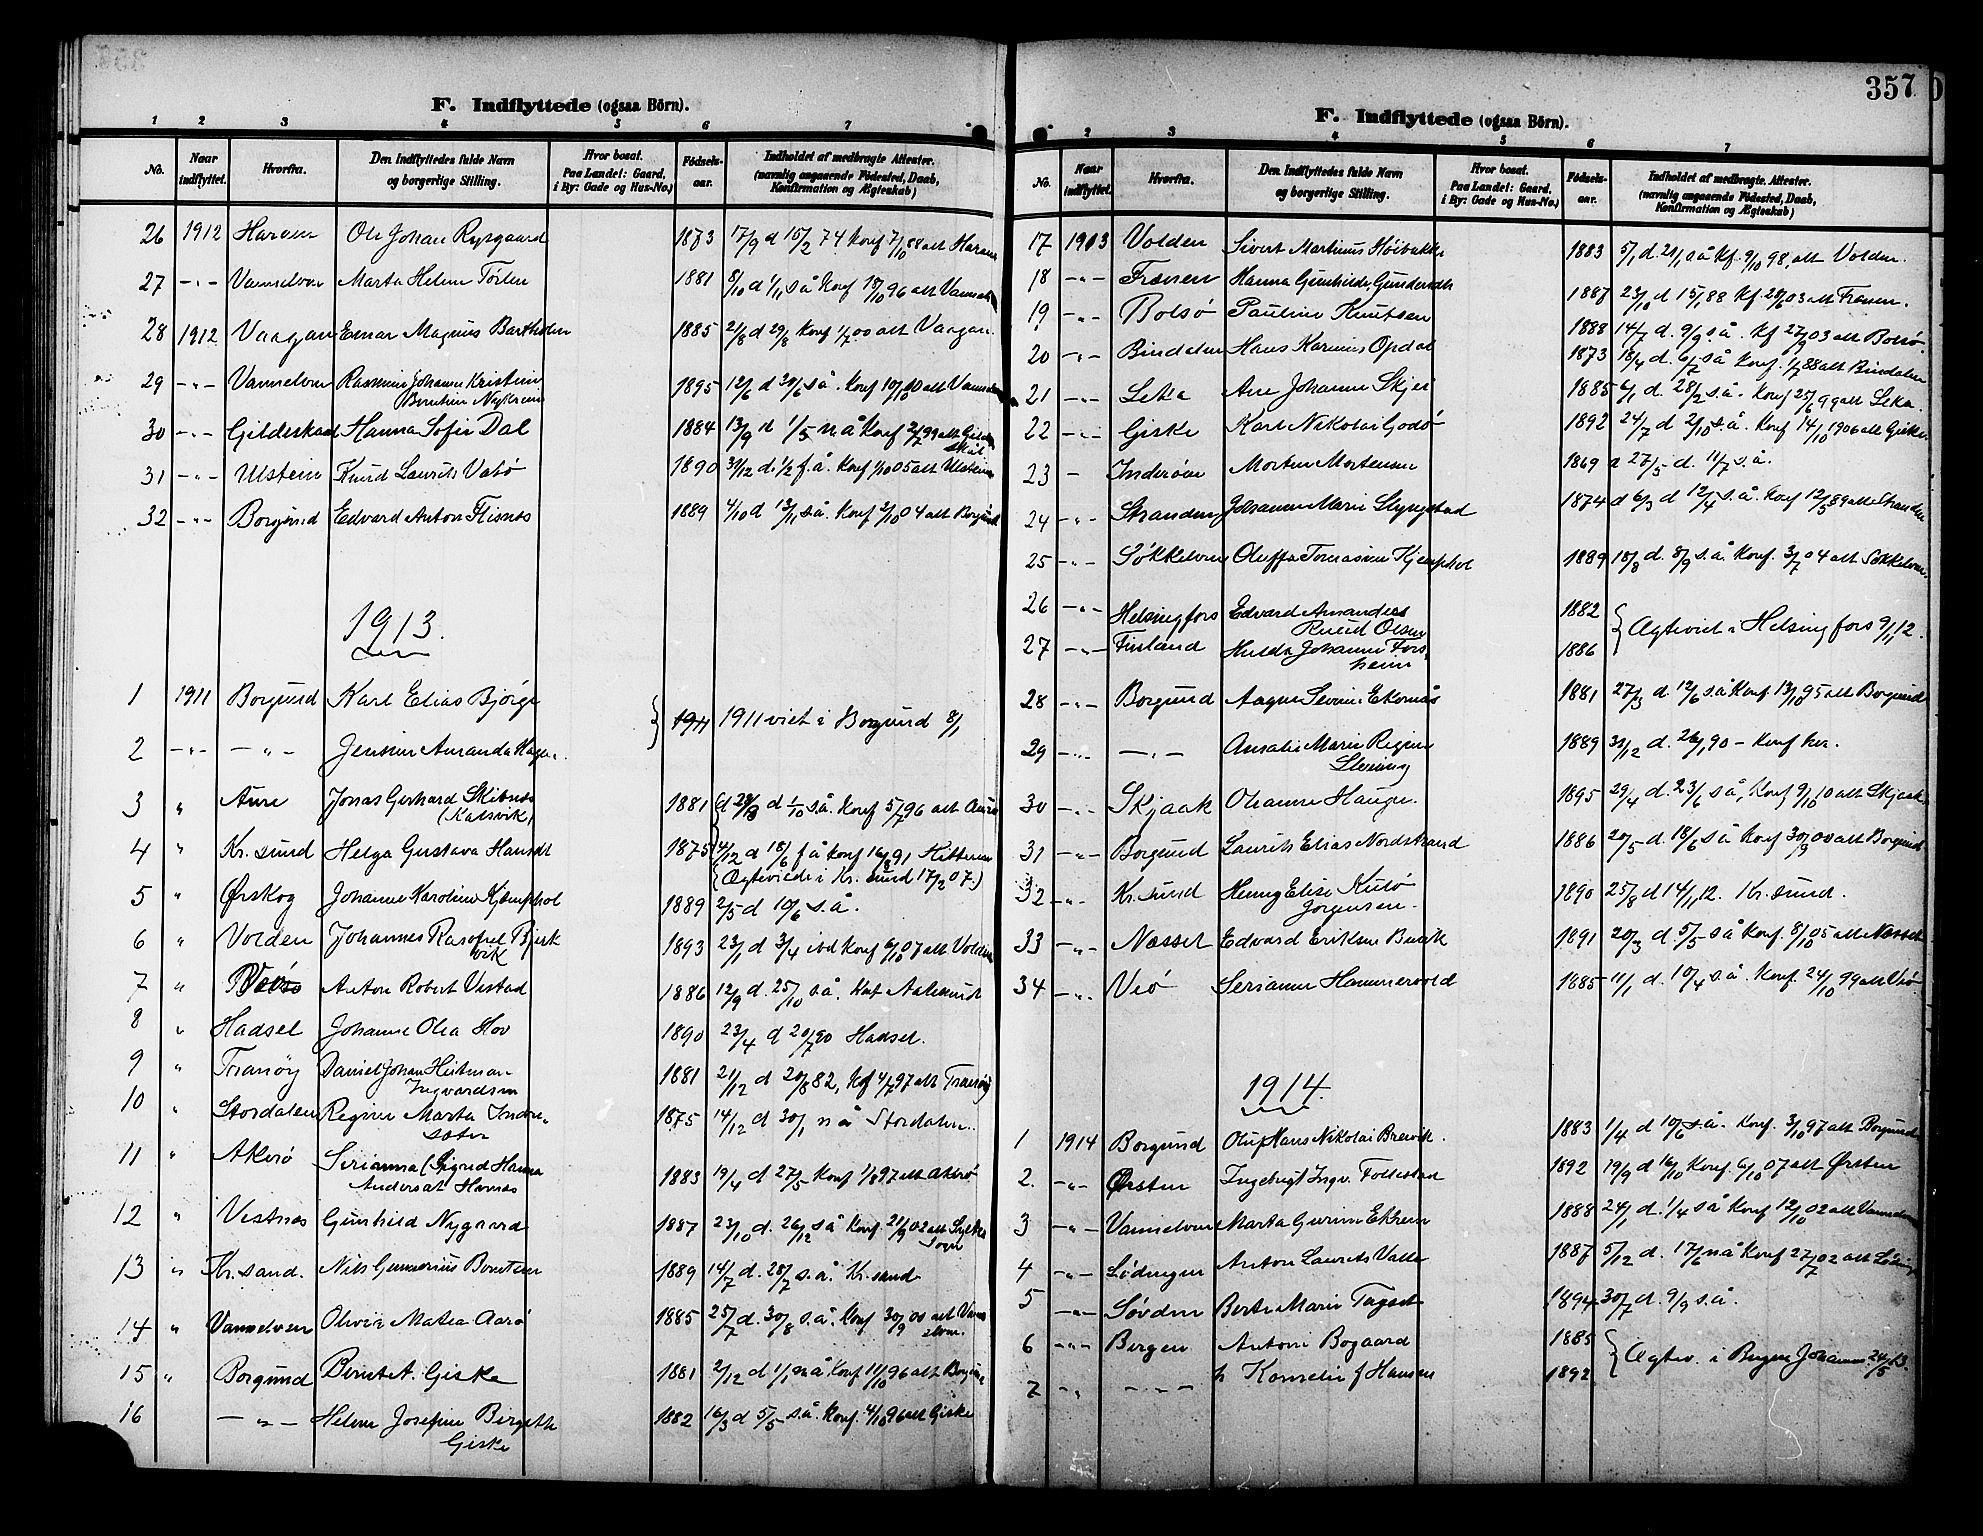 F. Indflyttede (ogsaa Börn).
1 2 3 4 5 6 7
No. Naar indflyttet. Hvorfra. Den Indflyttedes fulde Navn og borgerlige Stilling. Hvor bosat. Paa Landet: Gaard, i By: Gade og Hus-No.) Födsels-aar. Indholdet af medbragte Attester. (navnlig angaaende Födested, Daab, Konfirmation og Ægteskab)
26 1912 Haram Ole Johan Rysgaard 1873 17/9 d 15/2 74 Konf 7/10 88 att Haram
27 -"- Vannelven Marta Helene 1881 8/10 d 1/11 s å Konf 18/10 96 att
28 1912 Vaagan Einar Magnus 1885 21/8 d 29/8 Konf 1/7 00 att Vaagan
29 -"- Vannelven Rasmine Johanne Kristine 1895 12/6 d 30/6 s å. Konf 10/10 att
30 -"- Gildeskaal Hanna Sofie Dal 1884 13/9 d 1/5 n å Konf 2/7 99 att Gildeskål
31 -"- Ulstein Knud Laurits Vatø 1890 31/12 d. 1/2 f. å. Konf 1/10 05 att Ulstein
32 -"- Borgund Edvard Anton Flisnes 1889 4/10 d 13/11 s å. Konf 2/10 04 att Borgund
1913.
1 1911 Borgund Karl Elias Bjørge 1911 viet i Borgund 8/1
2 -"- -"- Jensine Amanda
3 " Aure Jonas Gerhard Skibnes 1881 d 1/10 s å. Konf 5/7 96 att Aure
(Kalsvik)
4 " Kr. sund Helga Gustava Hansdt 1875 4/12 d 18/6 f å Konf 16/8 91 Hitteren
(Ægteviede i Kr. sund 17/2 07.)
5 " Ørskog Johanne Karoline Kjemphol 1889 2/5 d 10/6 s. å.
6 " Volden Johannes Rasofiel Bjerkvik 1893 23/1 d 3/4 Konf 6/10 07 att Volden
7 " Anton Robert Vestad 1886 12/9 d. 25/10 s. å. Aalesund
8 " Hadsel Johanne Olea Hov 1890 23/4 d 20/7 90 Hadsel.
9 " Tranøy Daniel Johan Heitman 1881 21/12 d 20/8 82, Kf 4/7 97 att Tranøy
Ingvardsen
10 " Stordalen Regine Marta Indresæter 1875 14/12 d 30/1 n å Stordalen.
11 " Akerø Serianna (Sigrid Hanna 1883 19/4 d 27/5 Konf 1/8 97 att Akerø
Andersdt Havnås
12 " Vestnes Gunhild Nygaard 1887 23/10 d. 26/12 s å Konf 21/9 02 att Sylte Sogn
13 " Kr. sand. Nils Gunnerius Berntsen 1889 14/7 d. 28/7 s. å. Kr. sand
14 " Vannelven Olivia Matea Aarø 1885 25/7 d. 30/8 s. å. Konf 30/9 00 att Vannelven.
15 " Borgund Bernt A. Giske 1881 2/12 d 1/1 n å Konf 11/10 96 att Borgund
16 -"- Helene Josefine Birgitte 1882 16/3 d 5/5 s. å. Konf. 4/10 96 att Giske
Giske
357
F. Indflyttede (ogsaa Börn).
2 3 4 5 6 7
No. Naar indflyttet. Hvorfra. Den Indflyttedes fulde Navn og borgerlige Stilling. Hvor bosat. Paa Landet: Gaard, i By: Gade og Hus-No.) Födsels-aar. Indholdet af medbragte Attester. (navnlig angaaende Födested, Daab, Konfirmation og Ægteskab)
17 1913 Volden Sivert Martinus Høibakke 1883 5/1 d. 21/1 s å Kf. 9/10 98, att Volden.
18 -"- Frænen Hanna Gunhilde Gundersdt 1887 23/10 d 15/1 88 Kf. 28/6 03 att Frænen.
19 -"- Bolsø Pauline Knutsen 1888 14/7 d. 9/9 s. å. Kf 27/9 03 att Bolsø.
20 -"- Bindalen Hans Karinus Opdal 1873 18/4 d. 6/7 s å Konf. 1/7 88 att Bindalen
21 -"- Leka Are Johanne Skjei 1885 6/1 d. 28/2 s. å. Konf 25/6 99 att Leka.
22 -"- Giske Karl Nikolai Godø 1892 24/7 d 2/10 s. å. Konf 14/10 1906 att Giske.
23 - Inderøen Morten Mortensen 1869 27/5 d. 11/7 s. å.
24 -"- Stranden Johanne Marie Slyngstad 1874 d 6/3 d 12/4 s. å. Konf 12/5 89 att Stranden
25 -"- Søkkelven Oluffa Tomasine Kjemphol 1889 18/8 d. 8/9 s. å. Konf. 3/7 04 att Søkkelven.
26 -"- Helsingfors Edvard Amandus 1882 Ægteviet i Helsingfors 9/11 12.
Olsen
27 -"- Finland Hulda Johanne Forsheim 1886
28 -"- Borgund Aagne Severin Ekornås 1881 27/3 d. 12/6 s. å Konf 13/10 95 att Borgund
29 -"- -"- Amalie Marie Regine 1889 31/12 d. 26/1 90 - Konf her.
Slevning
30 -"- Skjaak Johanne Haugen 1895 29/4 d 23/6 s å, Konf 9/10 10 att Skjaak
31 -"- Borgund Laurits Elias Nordstrand 1886 20/5 d. 18/6 s å Konf 30/9 00 att Borgund
32 -"- Kr. sund Henny Elise Kulø 1890 25/8 d 14/11 12. Kr. sund.
Jørgensen
33 -"- Næsset Edvard Eriksen Buvik 1891 20/3 d. 5/5 s å Konf. 8/10 05 att Næsset
34 -"- Veø Serianne Hammervold 1885 11/1 d. 10/4 s. å. Konf. 24/10 99 att Veø
1914.
1 1914 Borgund Oluf Hans Nikolai Brevik. 1883 1/4 d 10/6 s. å. Konf. 3/10 97 att Borgund
2. -"- Ørsten Ingebrigt Ingv. Follestad 1892 19/9 d 16/10 Konf. 6/10 07 att Ørsten
3 -"- Vannelven Marta Gurine Ekrem 1888 24/1 d. 1/4 s å Konf 12/10 02 att Vannelven
4 -"- Lødingen Anton Laurits Valle 1887 5/12 d. 17/6 n å Konf 27/7 02 att Lødingen
5 -"- Søvden Berte Marie 1894 30/7 d. 9/9 s. å.
6 -"- Bergen Antoni Bogaard 1885 Ægtev. i Bergen Johannes 24/5 13.
7 -"- -"- h Kornelia f Hansen 1892